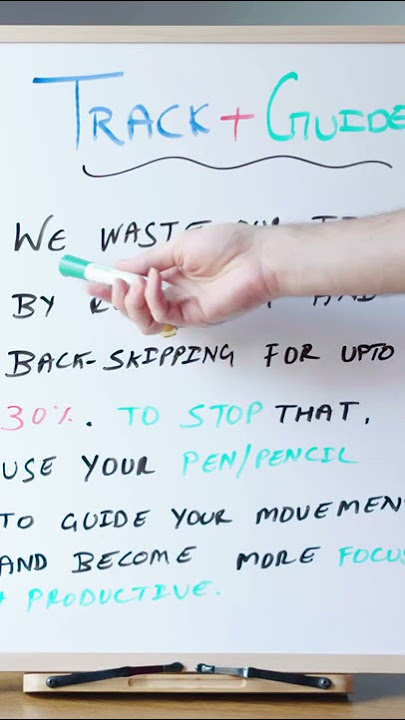 TRACK + GUIDE
WE WASTE
BY AND
BACK-SKIPPING FOR UPTO
30%. TO STOP THAT,
USE YOUR PEN/PENCIL
TO GUIDE YOUR MOVEMEN
AND BECOME MORE FOCUS
+ PRODUCTIVE.